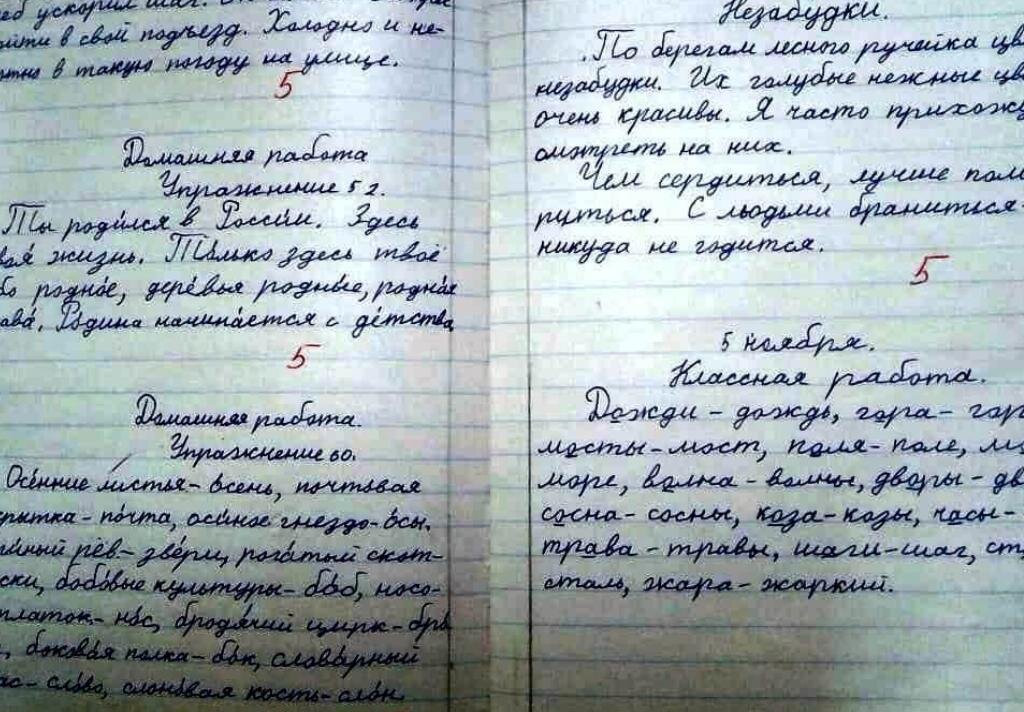 еб ускорил шаг.
ойти в свой подъезд. Холодно и не-
ютно в такую погоду на улице.
5
Домашняя работа
Упражнение 52.
Ты роди́лся в Росси́и. Здесь
воя́ жизнь. То́лько здесь твоё
бо родно́е, дере́вья родны́е, родна́я
рава́. Ро́дина начина́ется с де́тства
5
Домашняя работа.
Упражнение 60.
Осе́нние ли́стья - о́сень, почтовая
крытка - по́чта, оси́ное гнездо - о́сы.
иный рёв - зве́ри, рога́тый скот -
ски, бобо́вые культуры - бо́б, носо-
платок - но́с, бродя́чий цирк - бро
, бокова́я полка - бо́к, слова́рный
ас - сло́во, слоно́вая кость - сло́н.
Незабудки.
По берегам лесного ручейка цв
незабудки. Их голубые нежные цв
очень красивы. Я часто прихожу
смотреть на них.
Чем сердиться, лучше пом
риться. С людьми браниться -
никуда не годится.
5
5 ноября.
Классная работа.
Дожди - дождь, гора - гор
мосты - мост, поля - поле, мо
море, волна - волны, дворы - дв
сосна - сосны, коза - козы, часы -
трава - травы, шаги - шаг, ст
сталь, жара - жаркий.